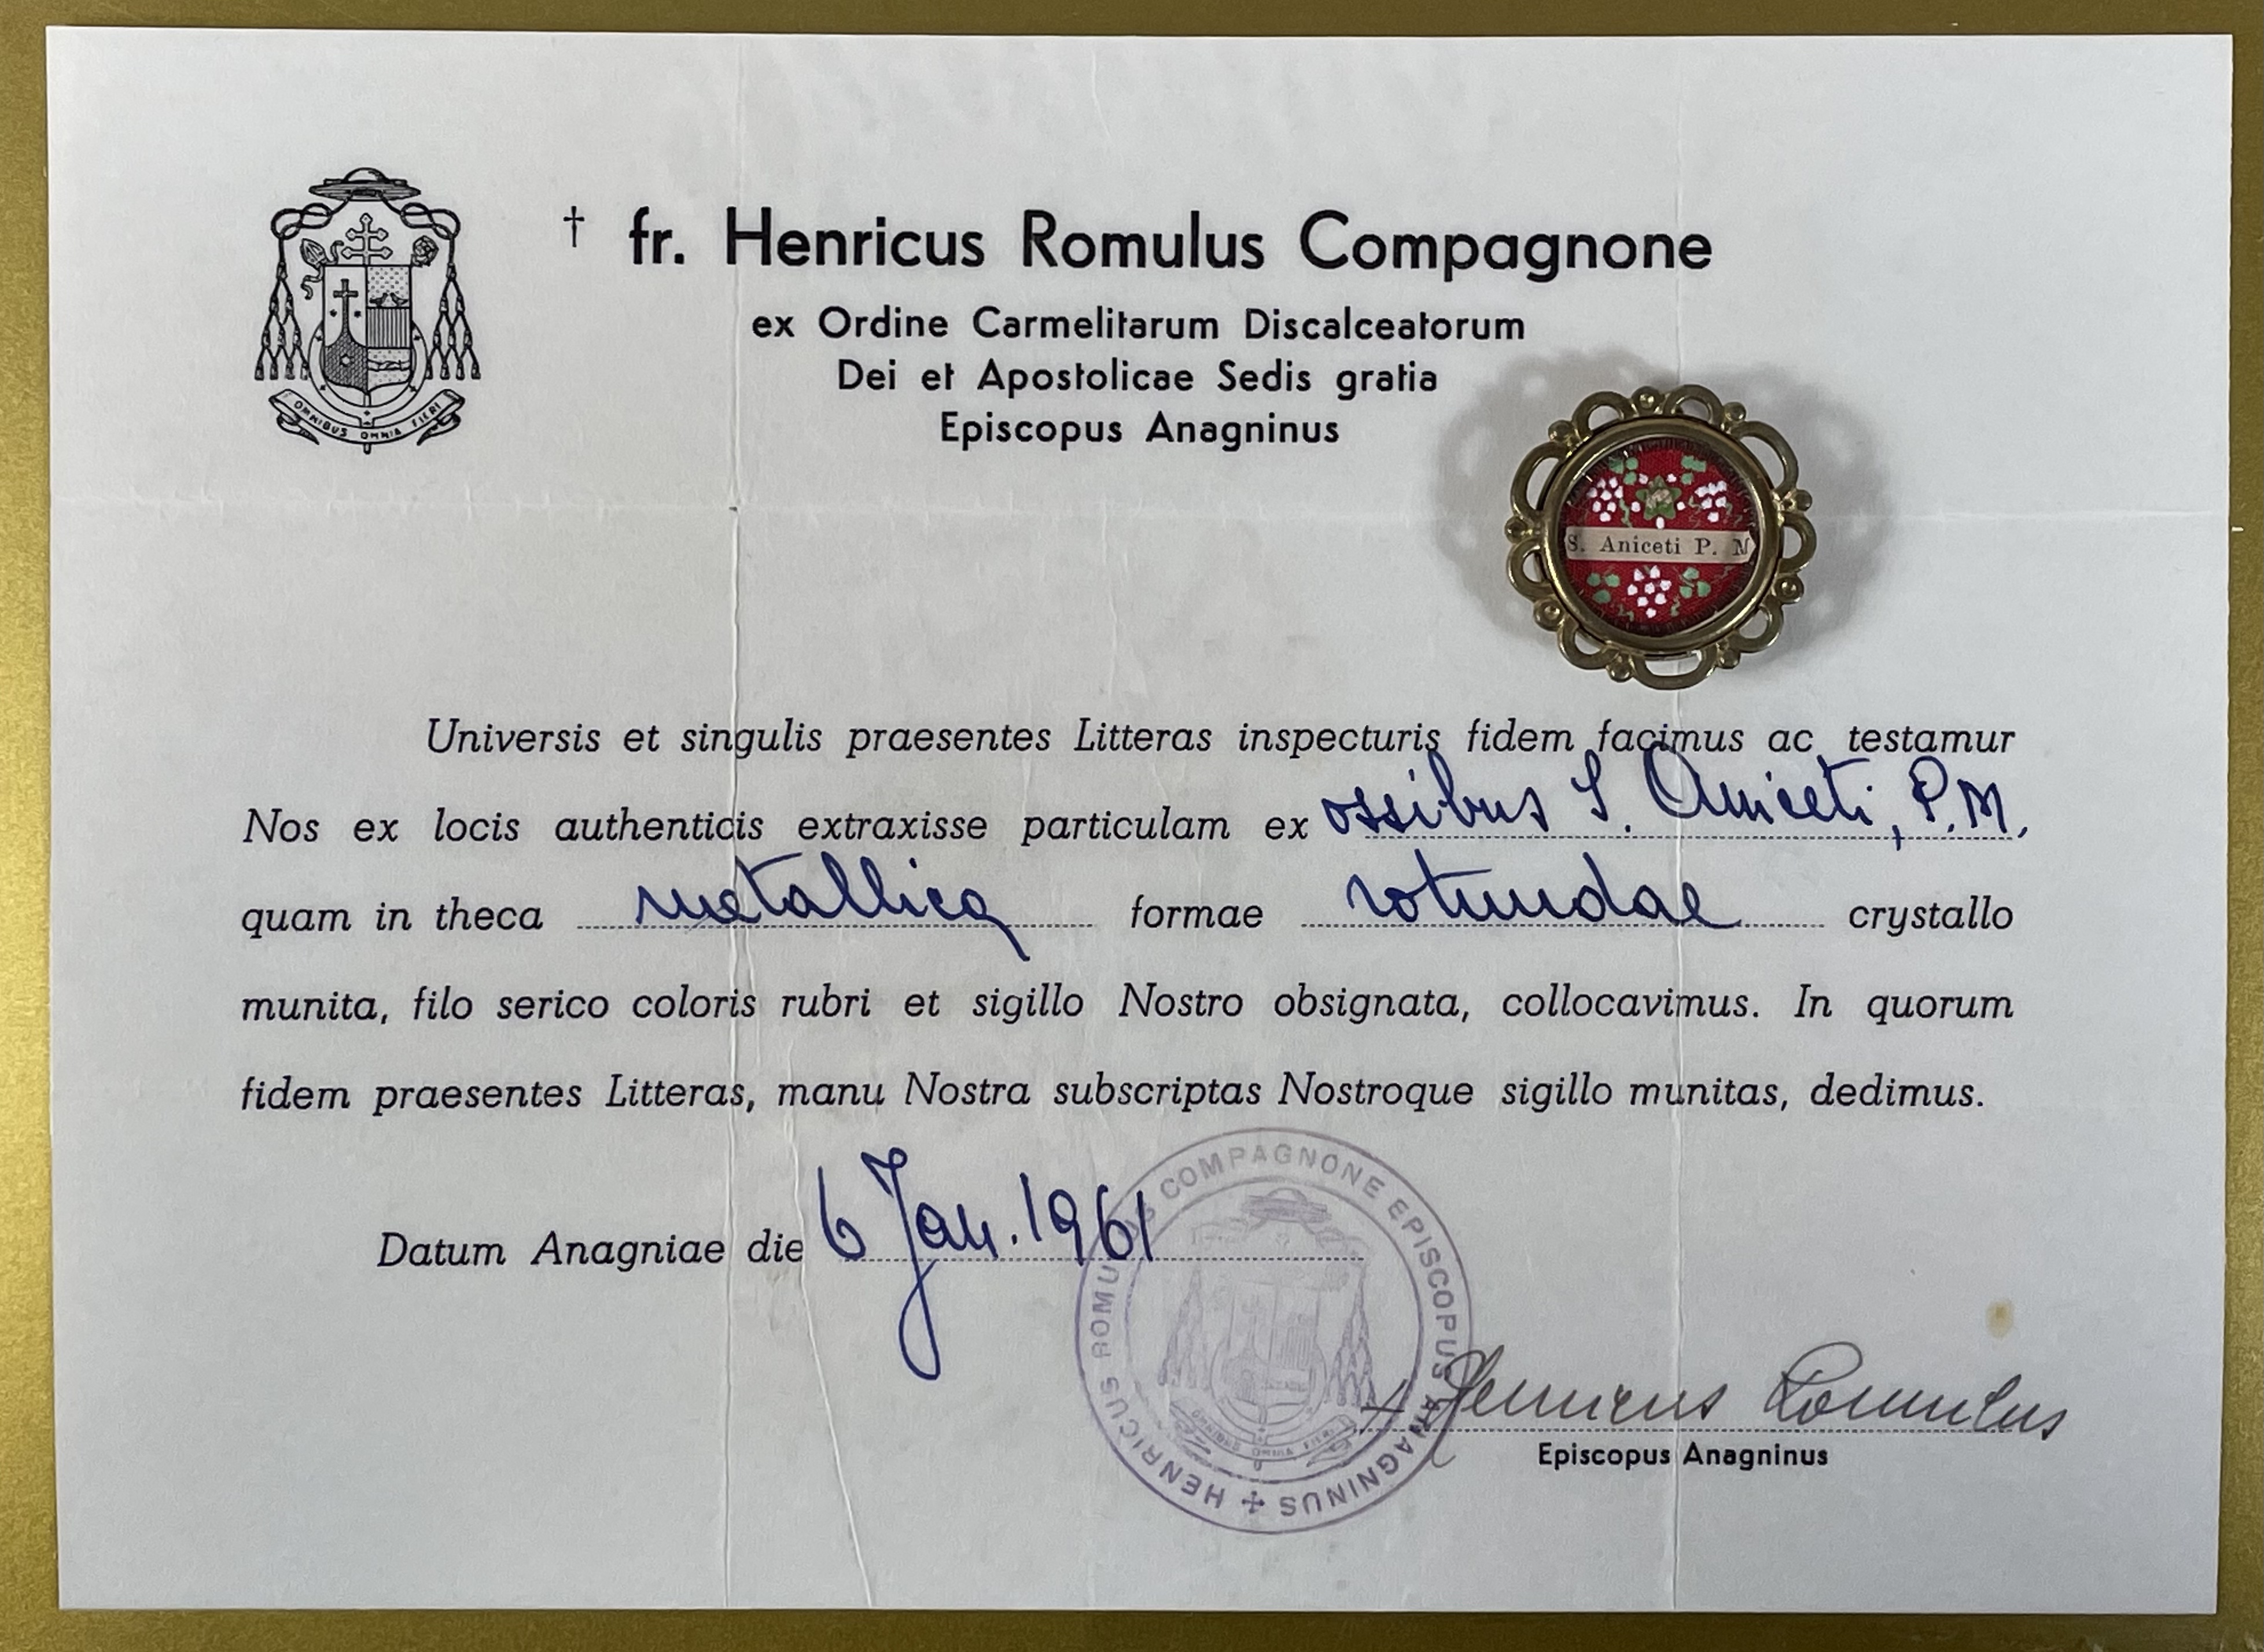 † fr. Henricus Romulus Compagnone
ex Ordine Carmelitarum Discalceatorum
Dei et Apostolicae Sedis gratia
Episcopus Anagninus
OMNIBUS OMNIA FIERI
S. Aniceti P. M
Universis et singulis praesentes Litteras inspecturis fidem facimus ac testamur
Nos ex locis authenticis extraxisse particulam ex ossibus S. Aniceti, P.M.
quam in theca metallica formae rotundae crystallo
munita, filo serico coloris rubri et sigillo Nostro obsignata, collocavimus. In quorum
fidem praesentes Litteras, manu Nostra subscriptas Nostroque sigillo munitas, dedimus.
Datum Anagniae die 6 Jan. 1961
HENRICUS ROMULUS COMPAGNONE EPISCOPUS ANAGNINUS
OMNIBUS OMNIA FIERI
+ Henricus Romulus
Episcopus Anagninus